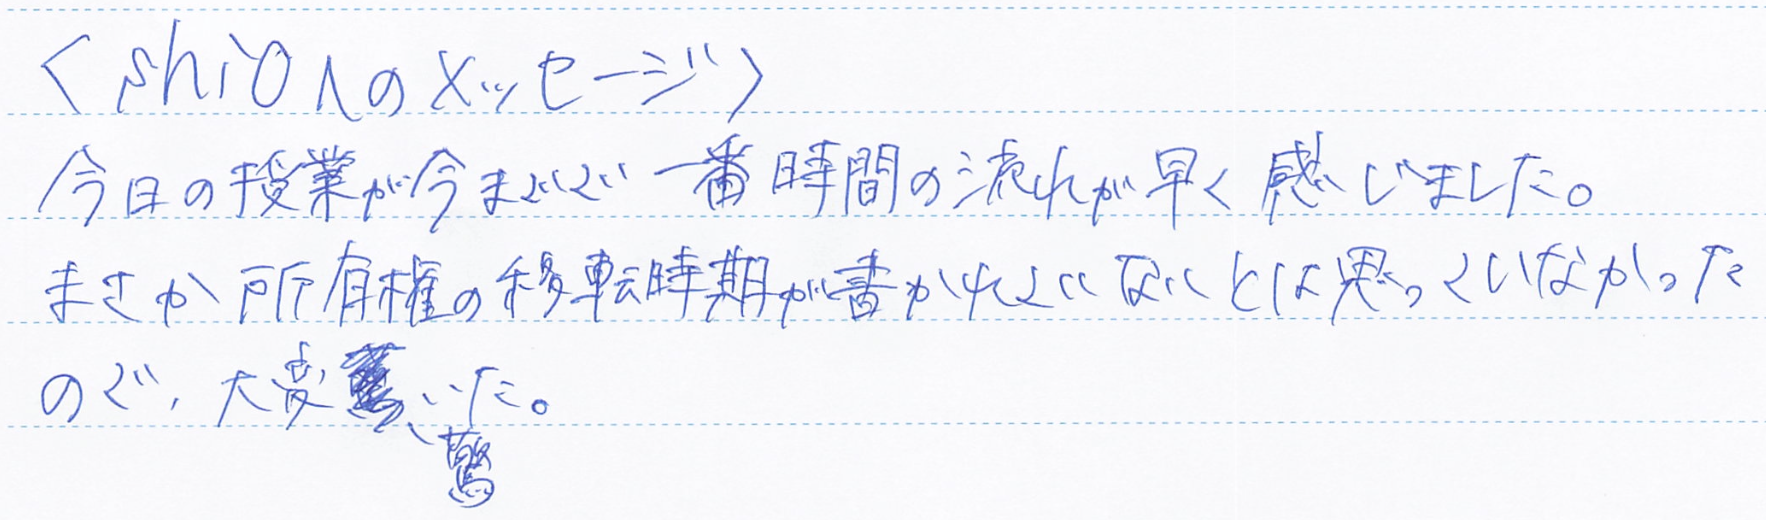 ＜shiOへのメッセージ＞
今日の授業が今までで一番時間の流れが早く感じました。
まさか所有権の移転時期が書かれてないとは思っていなかった
ので、大変驚いた。